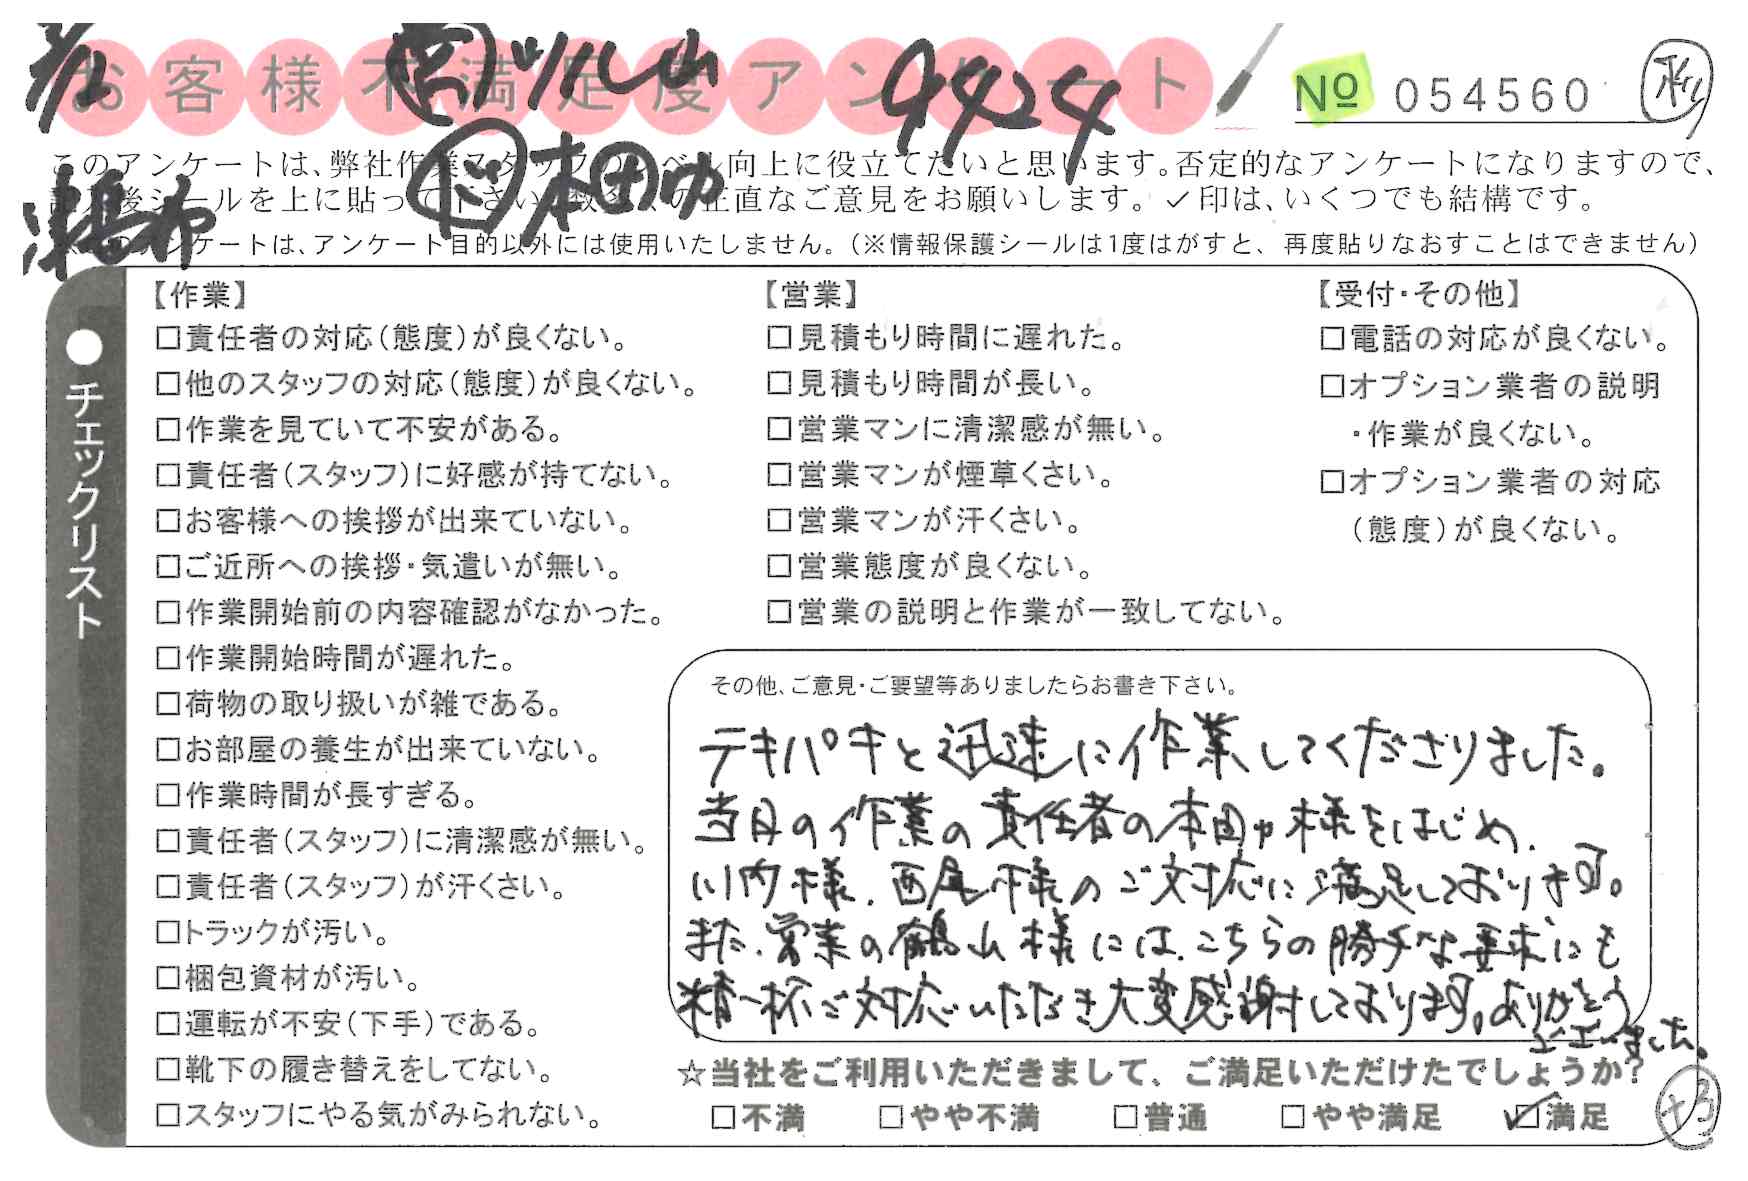 お客様不満足度アンケート
№ 054560
㊂ツル山
9424
本田カ
このアンケートは、弊社作業スタッフのレベル向上に役立てたいと思います。否定的なアンケートになりますので、
記入後シールを上に貼って下さい。数多くの正直なご意見をお願いします。✓印は、いくつでも結構です。
アンケートは、アンケート目的以外には使用いたしません。(※情報保護シールは1度はがすと、再度貼りなおすことはできません)
●チェックリスト
【作業】
□責任者の対応(態度)が良くない。
□他のスタッフの対応(態度)が良くない。
□作業を見ていて不安がある。
□責任者(スタッフ)に好感が持てない。
□お客様への挨拶が出来ていない。
□ご近所への挨拶・気遣いが無い。
□作業開始前の内容確認がなかった。
□作業開始時間が遅れた。
□荷物の取り扱いが雑である。
□お部屋の養生が出来ていない。
□作業時間が長すぎる。
□責任者(スタッフ)に清潔感が無い。
□責任者(スタッフ)が汗くさい。
□トラックが汚い。
□梱包資材が汚い。
□運転が不安(下手)である。
□靴下の履き替えをしてない。
□スタッフにやる気がみられない。
【営業】
□見積もり時間に遅れた。
□見積もり時間が長い。
□営業マンに清潔感が無い。
□営業マンが煙草くさい。
□営業マンが汗くさい。
□営業態度が良くない。
□営業の説明と作業が一致してない。
【受付・その他】
□電話の対応が良くない。
□オプション業者の説明
・作業が良くない。
□オプション業者の対応
(態度)が良くない。
その他、ご意見・ご要望等ありましたらお書き下さい。
テキパキと迅速に作業してくださりました。
当日の作業の責任者の本田カ様をはじめ、
川内様、西尾様のご対応に満足しております。
また、営業の鶴山様には、こちらの勝手な要求にも
精一杯ご対応いただき大変感謝しております。ありがとう
ございました。
☆当社をご利用いただきまして、ご満足いただけたでしょうか?
□不満 □やや不満 □普通 □やや満足 ☑満足